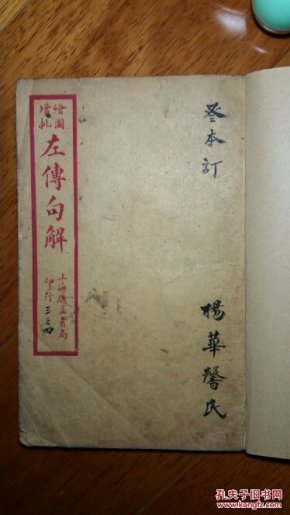 繪圖
增批
左傳句解
上海廣益書局
印行 三之四
叅本訂
楊華馨氏
孔夫子旧书网